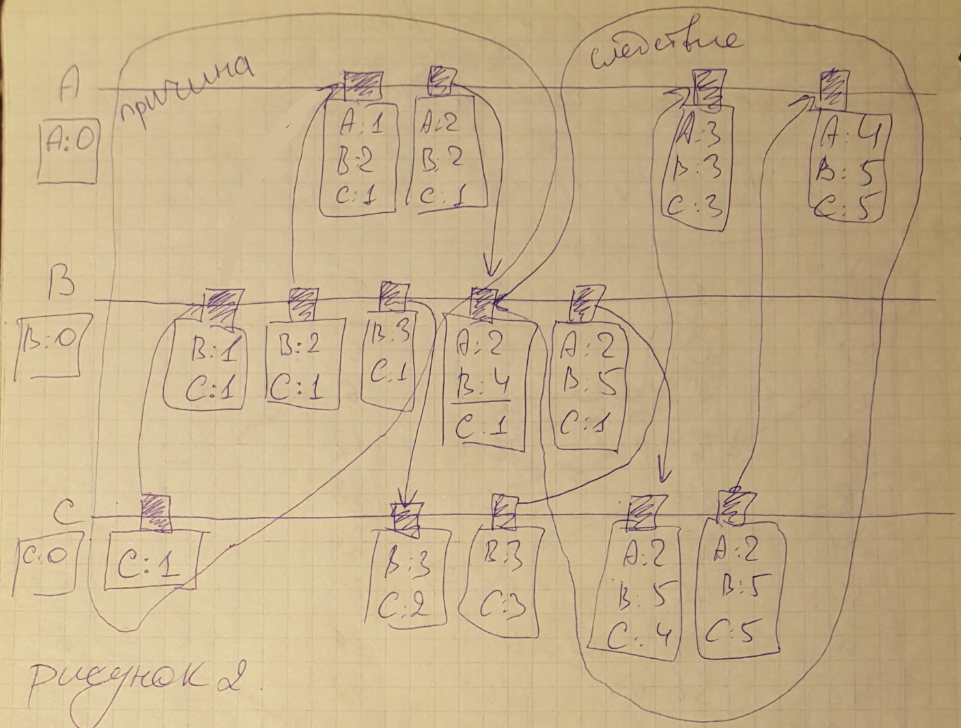 причина
следствие
A
A:0
A:1
B:2
C:1
A:2
B:2
C:1
A:3
B:3
C:3
A:4
B:5
C:5
B
B:0
B:1
C:1
B:2
C:1
B:3
C.1
A:2
B:4
C:1
A:2
B:5
C:1
C
C:0
C:1
B:3
C:2
B:3
C:3
A:2
B:5
C:4
A:2
B:5
C:5
рисунок 2.